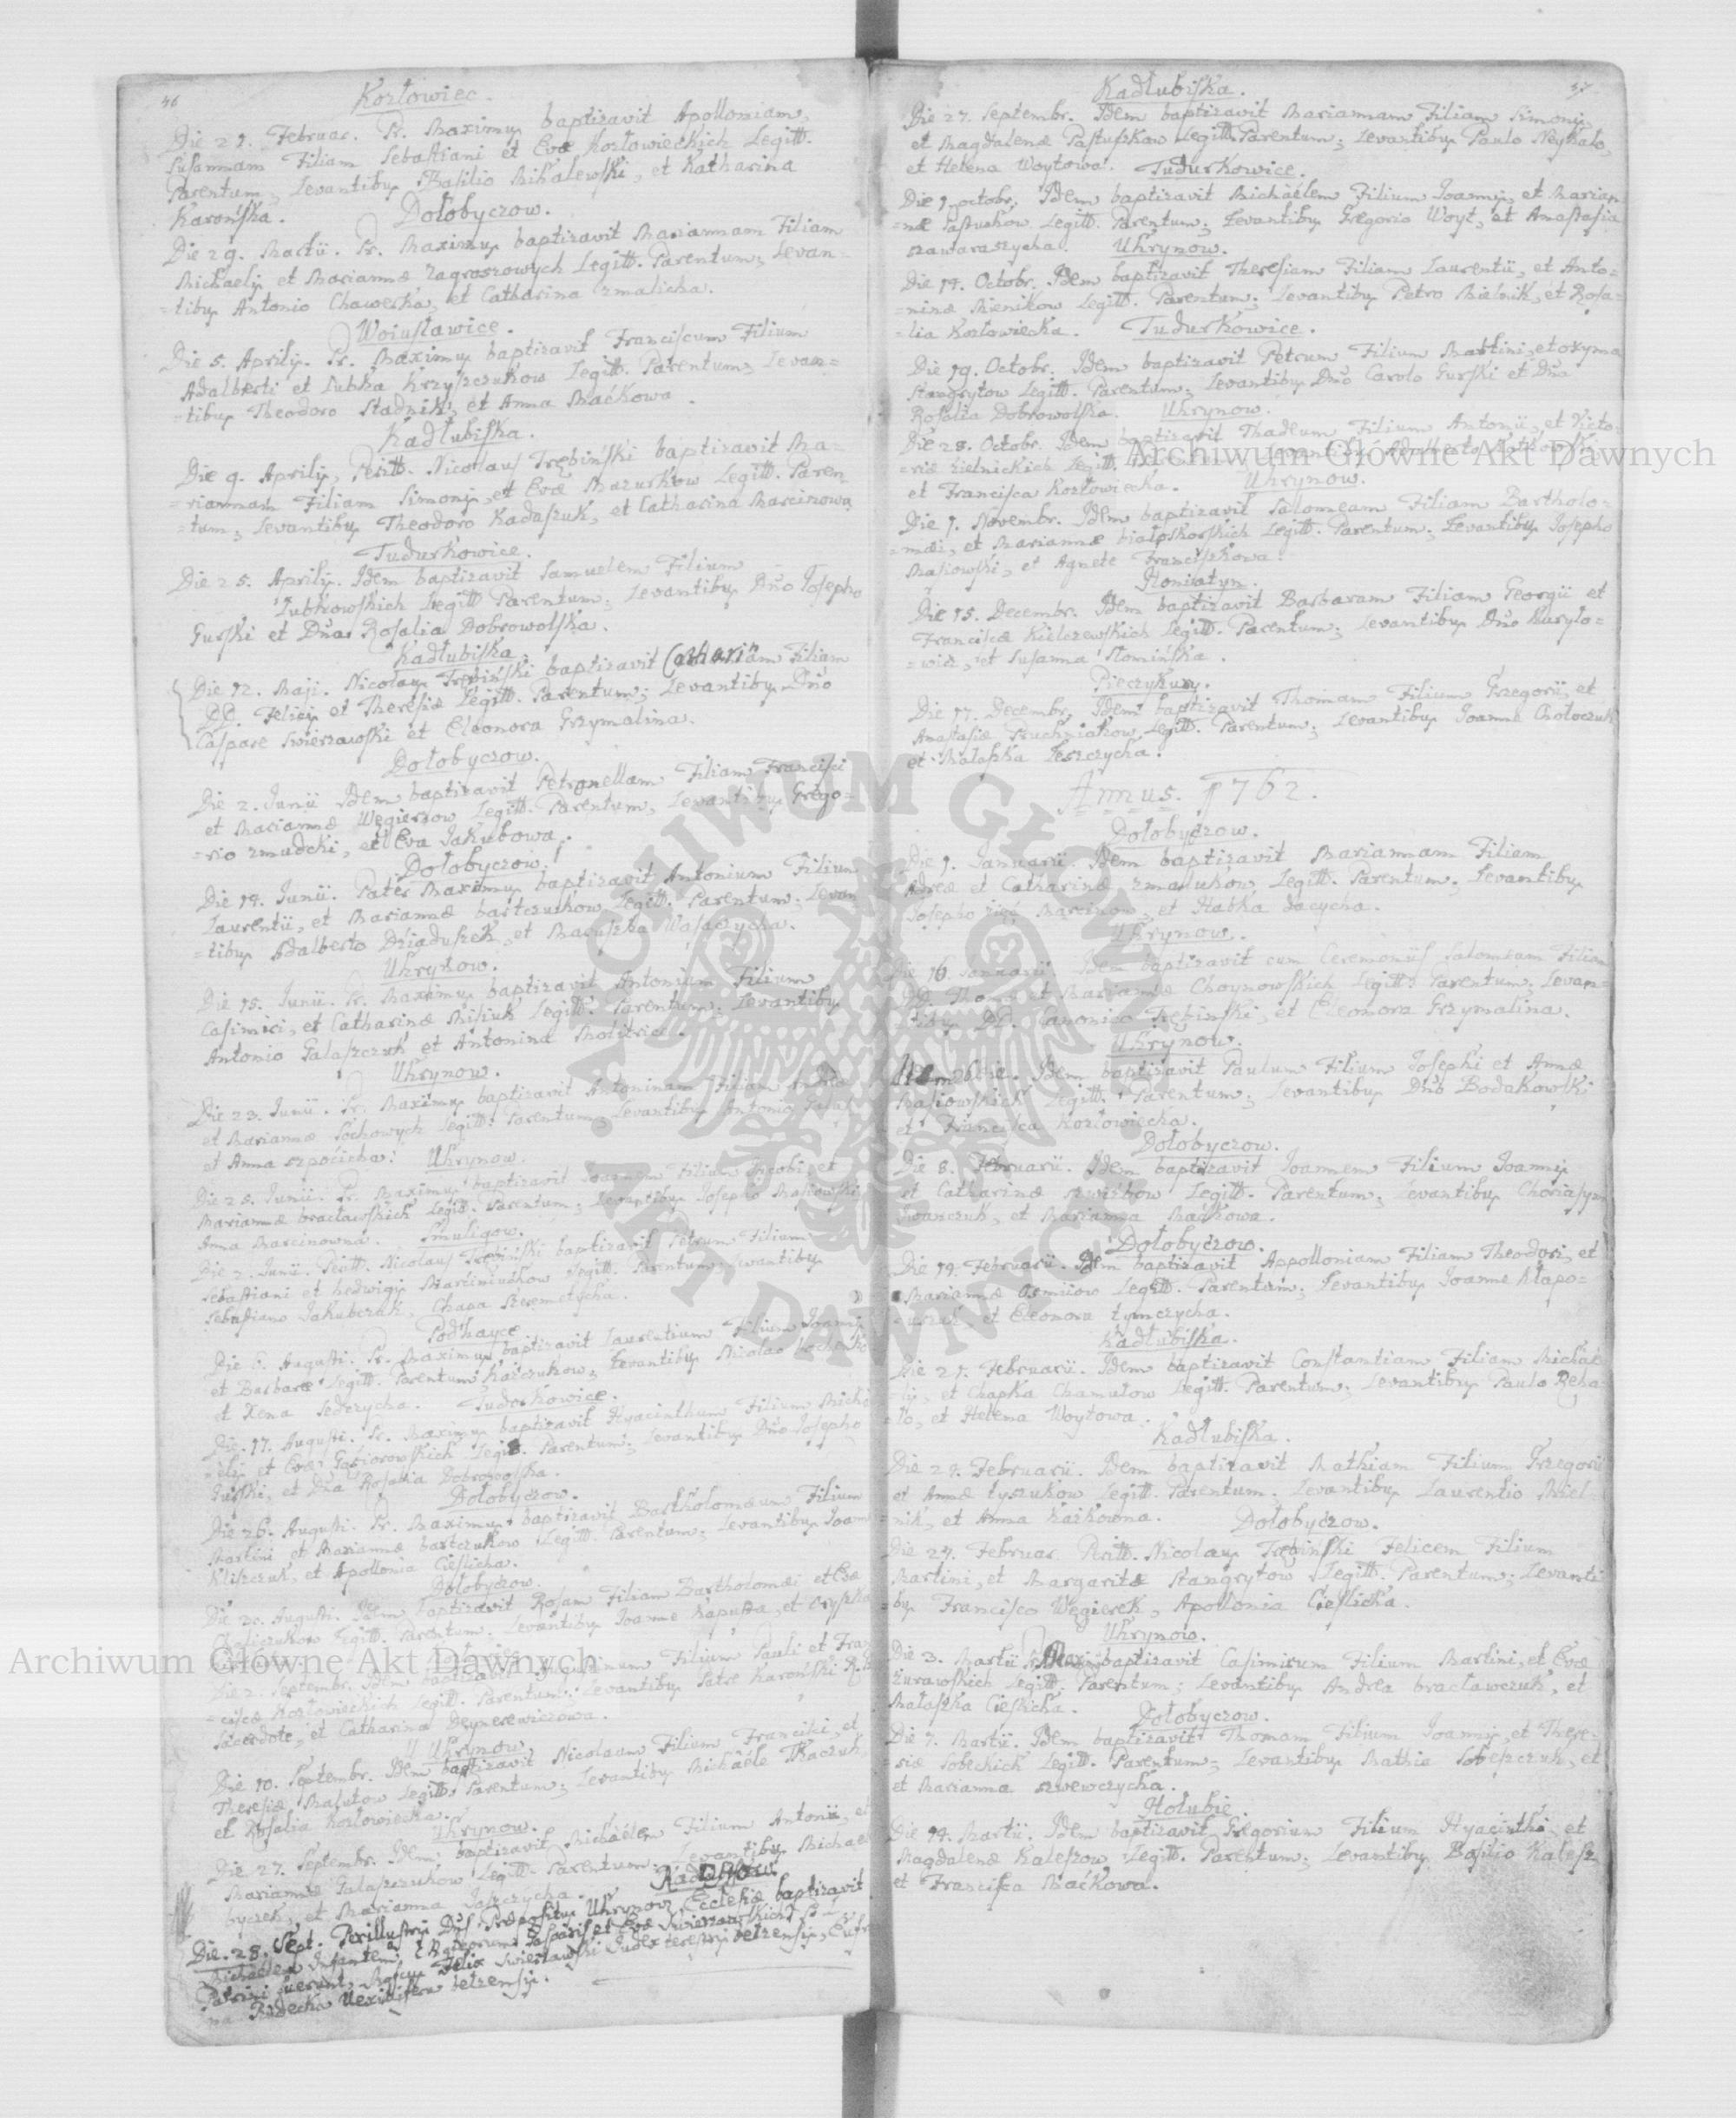 46
Kozłowiec.
Die 21. Februar. Pr. Maximus baptizavit Apolloniam,
Susannam Filiam Sebastiani et Evæ Kozłowieckich Legitt.
Parentum; Levantibus Basilio Mihalewski, et Katharina
Karońska.
Dołobyczow.
Die 29. Martii. Pr. Maximus baptizavit Mariannam Filiam
Michaelis et Mariannæ Zagroszowych Legitt. Parentum; Levan=
=tibus Antonio Chawerka, et Catharina
Woiusławice.
Die 5. Aprilis. Pr. Maximus baptizavit Franciscum Filium
Adalberti et Lubka Krzyszczukow Legitt. Parentum; Levan=
=tibus Theodoro Stadnik, et Anna Maćkowa.
Kadłubiska.
Die 9. Aprilis, Peritt. Nicolaus Trębiński baptizavit Ma=
=riannam Filiam Simonis, et Evæ Mazurkow Legitt. Paren=
=tum; Levantibus Theodoro Kadaszuk, et Catharina Marcinowa
Tudurkowice.
Die 25. Aprilis. Idem baptizavit Samuelem Filium
Lubkowskich Legitt. Parentum; Levantibus Dño Josepho
Gurski et Dña Rosalia Dobrowolska.
Kadłubiska.
Die 12. Maji. Nicolaus Trębiński baptizavit Catharinam Filiam
DD. Felicis et Theresiæ Legitt. Parentum; Levantibus Dño
Caspare Swierzawski et Eleonora Grzymalina.
Dołobyczow.
Die 2. Junii Idem baptizavit Petronellam Filiam Francisci
et Mariannæ Węgierzow Legitt. Parentum, Levantibus Grego=
=rio Zmudcki, et Eva Jakubowa.
Dołobyczow.
Die 14. Junii. Pater Maximus baptizavit Antonium Filium
Laurentii, et Mariannæ bartczukow Legitt. Parentum; Levan
=tibus Adalberto Dziaduszek, et Maruszka
Uhrynow.
Die 15. Junii. Pr. Maximus baptizavit Antonium Filium
Casimiri, et Catharinæ Misiuk Legitt. Parentum; Levantibus
Antonio Galaszczuk et Antonina
Uhrynow.
Die 23. Junii. Pr. Maximus baptizavit Antoninam Filiam
et Mariannæ Sochowych Legitt. Parentum; Levantibus Antonio
et Anna
Uhrynow.
Die 25. Junii. Pr. Maximus baptizavit Joannem Filium Jacobi et
Mariannæ bracławskich Legitt. Parentum; Levantibus Josepho Masiowski
Anna Marcinowna.
Smuligow.
Die 2. Junii. Peritt. Nicolaus Trębiński baptizavit Petrum Filium
Sebastiani et hedwigis Martiniukow Legitt. Parentum; Levantibus
Sebastiano Jakubczuk, Chapa
Podhayce
Die 6. Augusti. Pr. Maximus baptizavit Laurentium Filium Joannis
et Barbaræ Legitt. Parentum Levantibus Nicolao
et Xena
Tudurkowice.
Die 17. Augusti. Pr. Maximus baptizavit Hyacinthum Filium Micha
=elis et Evæ Gąsiorowskich Legitt. Parentum; Levantibus Dño Josepho
Gurski, et Dña Rosalia Dobrowolska.
Dołobyczow.
Die 26. Augusti. Pr. Maximus baptizavit Bartholomæum Filium
Martini et Mariannæ bartczukow Legitt. Parentum; Levantibus Joan
Kliszczuk, et Apollonia Cieslicha.
Dołobyczow.
Die 30. Augusti. Idem baptizavit Rosam Filiam Bartholomæi et Evæ
Legitt. Parentum; Levantibus Joanne Kapusta, et Oryszka
Die 2. Septembr. Idem baptizavit Augustinum Filium Pauli et Fran
=ciscæ Kozłowieckich Legitt. Parentum; Levantibus Patre Karoński
Sacerdote, et Catharina
Uhrynow
Die 10. Septembr. Idem baptizavit Nicolaum Filium Francisci, et
Theresiæ Masutow Legitt. Parentum; Levantibus Michaële Tkaczuk,
et Rosalia Kozłowiecka.
Uhrynow.
Die 27. Septembr. Idem baptizavit Michaëlem Filium Antonii, et
Mariannæ Galaszczukow Legitt. Parentum; Levantibus Michael
et Marianna
Die. 28. Sept. Perillustris Dñs Præpositus Uhrynov. Ecclesiæ baptizavit
Michaëlem Infantem Gasparis et Evæ Swierzawskich
Patrini fuerunt Felix Swierzawski Judex terestris belzensis,
Rudecka Uexillifera belzensis.
Kadłubiska.
Die 27. Septembr. Idem baptizavit Mariannam Filiam Simonis
et Magdalenæ Pastuszkow Legitt. Parentum; Levantibus Paulo Neykalo,
et Helena Woytowa.
Tudurkowice.
Die 1. octobr. Idem baptizavit Michaëlem Filium Joannis, et Marian
=næ Pastuchow Legitt. Parentum; Levantibus Gregorio Woyt, et Anastasia
Uhrynow.
Die 14. Octobr. Idem baptizavit Theresiam Filiam Laurentii, et Anto=
=ninæ Mienikow Legitt. Parentum; Levantibus Petro Mielnik, et Rosa=
=lia Kozłowiecka.
Tudurkowice.
Die 19. Octobr. Idem baptizavit Petrum Filium Martini, et oxyma
Stangrytow Legitt. Parentum; Levantibus Dño Carolo Gurski et Dña
Rosalia Dobrowolska.
Uhrynow.
Die 28. Octobr. Idem baptizavit Thadeum Filium Antonii, et Victo=
=riæ zielnickich Legitt. Levantibus Adalberto
et Francisca Kozłowiecka.
Uhrynow.
Die 1. Novembr. Idem baptizavit Salomeam Filiam Bartholo=
=mæi, et Mariannæ białoskorskich Legitt. Parentum; Levantibus Josepho
Masiowski, et Agnete Franciszkowa.
Honiatyn.
Die 15. Decembr. Idem baptizavit Barbaram Filiam Georgii et
Franciscæ Kielczewskich Legitt. Parentum; Levantibus Dño Kuryło=
=wicz, et Susanna Słomińska.
Pieczykury.
Die 17. Decembr. Idem baptizavit Thomam Filium Grzegorii, et
Anastasiæ Pruchniakow Legitt. Parentum; Levantibus Joanne Chołoczuk
et Małaszka Leszczycha.
Annus. 1762.
Dołobyczow.
Die 1. Januarii. Idem baptizavit Mariannam Filiam
Adreæ et Catharinæ Legitt. Parentum; Levantibus
Josepho zięć Marcinow, et Habka
Uhrynow.
Die 16. Januarii. Idem baptizavit cum Ceremoniis Salomeam Filiam
DD. Thomæ et Mariannæ Choynowskich Legitt. Parentum; Levan=
=tibus DD. Canonico Trębinski, et Eleonora Grzymalina.
Uhrynow.
Idem baptizavit Paulum Filium Josephi et Annæ
Masiowskich Legitt. Parentum; Levantibus Dño Bodakowski
et Francisca Kozłowiecka.
Dołobyczow.
Die 8. Februarii. Idem baptizavit Joannem Filium Joannis
et Catharinæ Legitt. Parentum; Levantibus
Iwanczuk, et Marianna Maćkowa.
Dołobyczow.
Die 19. Februarii. Idem baptizavit Appolloniam Filiam Theodori, et
Mariannæ Legitt. Parentum; Levantibus Joanne Kłapo=
et Eleonora tymczycha.
Kadłubiska.
Die 21. Februarii. Idem baptizavit Constantiam Filiam Michaë
=lis, et Chapka Chamutow Legitt. Parentum; Levantibus Paulo Reha
=lo, et Helena Woytowa.
Kadłubiska.
Die 24. Februarii. Idem baptizavit Mathiam Filium Grzegorii
et Annæ łyszukow Legitt. Parentum. Levantibus Laurentio Miel=
=nik, et Anna
Dołobyczow.
Die 24. Februar. Peritt. Nicolaus Trębinski Felicem Filium
Martini, et Margaritæ Stangrytow Legitt. Parentum; Levanti
=bus Francisco Węgierek, Apollonia Cieslicka.
Uhrynow.
Die 3. Martii baptizavit Casimirum Filium Martini, et Evæ
Zurawskich Legitt. Parentum; Levantibus Andrea bracławczuk, et
Małaszka Cieslicha.
Dołobyczow.
Die 7. Martii. Idem baptizavit Thomam Filium Joannis, et There=
=siæ Sobeckich Legitt. Parentum; Levantibus Mathia et
et Marianna szwewczycha.
Hołubie.
Die 14. Martii. Idem baptizavit Gregorium Filium Hyacinthi, et
Magdalenæ Kaleszow Legitt. Parentum; Levantibus Basilio Kalesz
et Francisca Maćkowa.
Archiwum Główne Akt Dawnych
Archiwum Główne Akt Dawnych
ARCHIWUM GŁÓWNE AKT DAWNYCH